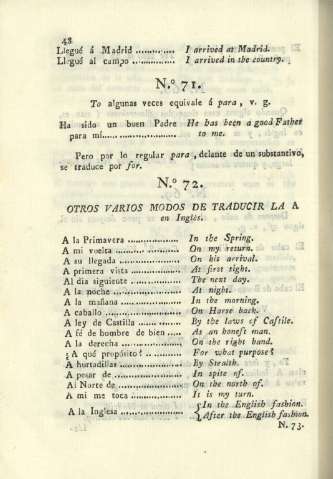 48
Llegué á Madrid ............ I arrived at Madrid.
Llegué al campo ............ I arrived in the country.
N.º 71.
To algunas veces equivale á para, v. g.
Ha sido un buen Padre He has been a good Father
para mí..................... to me.
Pero por lo regular para, delante de un substantivo,
se traduce por for.
N.º 72.
OTROS VARIOS MODOS DE TRADUCIR LA A
en Inglés.
A la Primavera ............... In the Spring.
A mi vuelta .................. On my return.
A su llegada ................. On his arrival.
A primera vista .............. At first sight.
Al dia siguiente ............. The next day.
A la noche ................... At night.
A la mañana .................. In the morning.
A caballo .................... On Horse back.
A ley de Castilla ............ By the laws of Castile.
A fé de hombre de bien ....... As an honest man.
A la derecha ................. On the right hand.
¿A qué propósito? ............ For what purpose?
A hurtadillas ................ By Stealth.
A pesar de ................... In spite of.
Al Norte de .................. On the north of.
A mi me toca ................. It is my turn.
A la Inglesa ................. { In the English fashion.
After the English fashion.
N. 73.